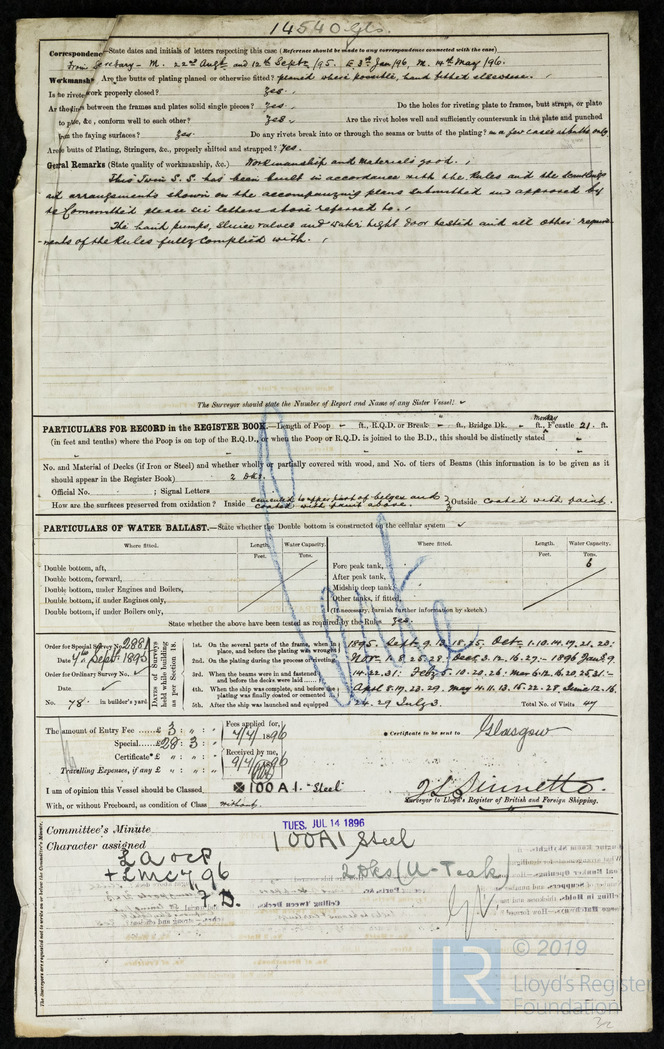 14540 Gls.
Correspondence—State dates and initials of letters respecting this case (Reference should be made to any correspondence connected with the case)
From Secretary - M. 22nd Augt and 12th Septr/95. E 3rd Jan/96, M. 14th May/96.
Workmanship Are the butts of plating planed or otherwise fitted? planed where possible, hand fitted elsewhere.
Is the riveted work properly closed? Yes.
Are the fillings between the frames and plates solid single pieces? Yes. Do the holes for riveting plate to frames, butt straps, or plate
to plate, &c., conform well to each other? Yes. Are the rivet holes well and sufficiently countersunk in the plate and punched
from the faying surfaces? Yes. Do any rivets break into or through the seams or butts of the plating? in a few cases at butts only
Are the butts of Plating, Stringers, &c., properly shifted and strapped? Yes.
General Remarks (State quality of workmanship, &c.) Workmanship and materials good.
This Twin S.S. has been built in accordance with the Rules and the Scantlings
and arrangements shown on the accompanying plans submitted and approved by
the Committee please see letters above referred to.
The hand pumps, sluice valves and water tight door tested and all other require-
-ments of the Rules fully complied with.
The Surveyor should state the Number of Report and Name of any Sister Vessel:
PARTICULARS FOR RECORD in the REGISTER BOOK.—Length of Poop - ft., R.Q.D. or Break - ft., Bridge Dk. - ft., Monkey F'castle 21 ft.
(in feet and tenths) where the Poop is on top of the R.Q.D., or when the Poop or R.Q.D. is joined to the B.D., this should be distinctly stated
No. and Material of Decks (if Iron or Steel) and whether wholly or partially covered with wood, and No. of tiers of Beams (this information is to be given as it
should appear in the Register Book) 2 Dks.
Official No. ; Signal Letters
How are the surfaces preserved from oxidation? Inside cemented to upper part of bilges and coated with paint above. Outside coated with paint.
PARTICULARS OF WATER BALLAST.—State whether the Double bottom is constructed on the cellular system
Where fitted. Length. Water Capacity. Where fitted. Length. Water Capacity.
Feet. Tons. Feet. Tons.
Double bottom, aft, Fore peak tank, 6
Double bottom, forward, After peak tank,
Double bottom, under Engines and Boilers, Midship deep tank,
Double bottom, if under Engines only, Other tanks, if fitted,
Double bottom, if under Boilers only, (If necessary, furnish further information by sketch.)
State whether the above have been tested as required by the Rules Yes.
Order for Special Survey No. 2881
Date 4th Septr 1895
Order for Ordinary Survey No.
Date
No. 78 in builder's yard.
Dates of Surveys held while building as per Section 18.
1st. On the several parts of the frame, when in place, and before the plating was wrought 1895. Sept. 9. 12. 18. 25, Oct. 1. 10. 14. 19. 21. 28:
2nd. On the plating during the process of riveting Nov. 1. 8. 25. 28. Dec. 3. 12. 16. 27. - 1896 Jan. 8. 9.
3rd. When the beams were in and fastened and before the decks were laid 14. 22. 31: Feb. 5. 10. 20. 26: Mar 6. 12. 16. 20. 25. 31:-
4th. When the ship was complete, and before the plating was finally coated or cemented April 8. 19. 23. 29. May 4. 11. 13. 15. 22. 28. June 12. 16.
5th. After the ship was launched and equipped 24. 29 July 3. Total No. of Visits 47
The amount of Entry Fee £ 3 : " : "
Special £ 28 : 3 : "
Certificate* £ " : " : "
Travelling Expenses, if any £ " : " : "
Fees applied for,
7/7/1896
Received by me,
9/7/1896
* Certificate to be sent to Glasgow
I am of opinion this Vessel should be Classed 100A1. "Steel"
With, or without Freeboard, as condition of Class without
Surveyor to Lloyd's Register of British and Foreign Shipping.
Committee's Minute TUES. JUL 14 1896
Character assigned 100A1 Steel
L A & C P
+ LMC 7.96
F. D.
2 Dks (U-Teak)
The Surveyors are requested not to write on or below the Committee's Minute.
© 2019
LR
Lloyd's Register
Foundation